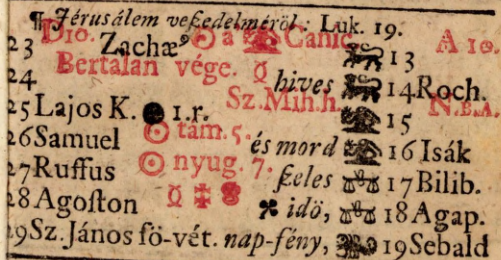 ¶ Jérusálem veſzedelméröl. Luk. 19.
23 Zachæ⁹ ☉ a ♌ Canic ♌ 13 A 10.
24 Bertalan vége. ☿ hives ♌ 14 Roch.
25 Lajos K. ● 1. r. Sz. Mih. h. 15 N. B. A.
26 Samuel ☉ tám. 5. és mord 16 Isák
27 Ruffus ☉ nyug. 7. ſzeles ♎ 17 Bilib.
28 Agoſton ☿ idö, ♎ 18 Agap.
29 Sz. János fö-vét. nap-fény, 19 Sebald